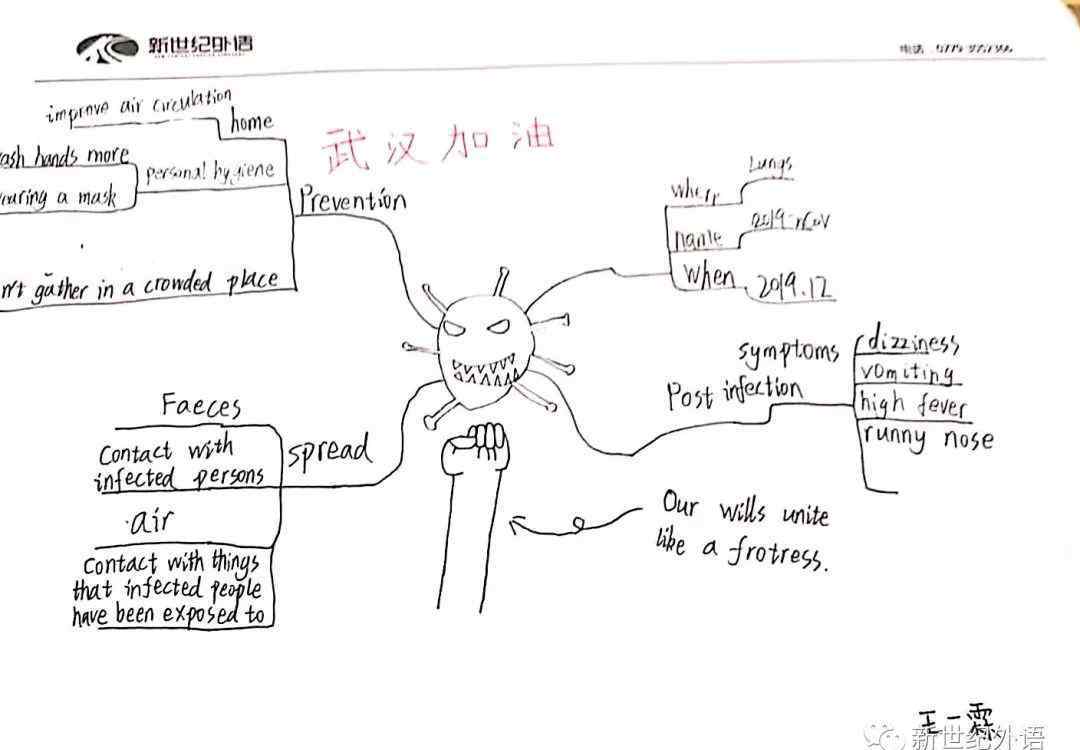 新世纪外语
电话:0779-
improve air circulation
home
武汉加油
ash hands more
personal hygiene
aring a mask
Prevention
n't gather in a crowded place
Lungs
where
2019-nCoV
name
when
2019.12
symptoms
Post infection
dizziness
vomiting
high fever
runny nose
Faeces
Contact with
infected persons
spread
air
Contact with things
that infected people
have been exposed to
Our wills unite
like a frotress.
王一霖
新世纪外语